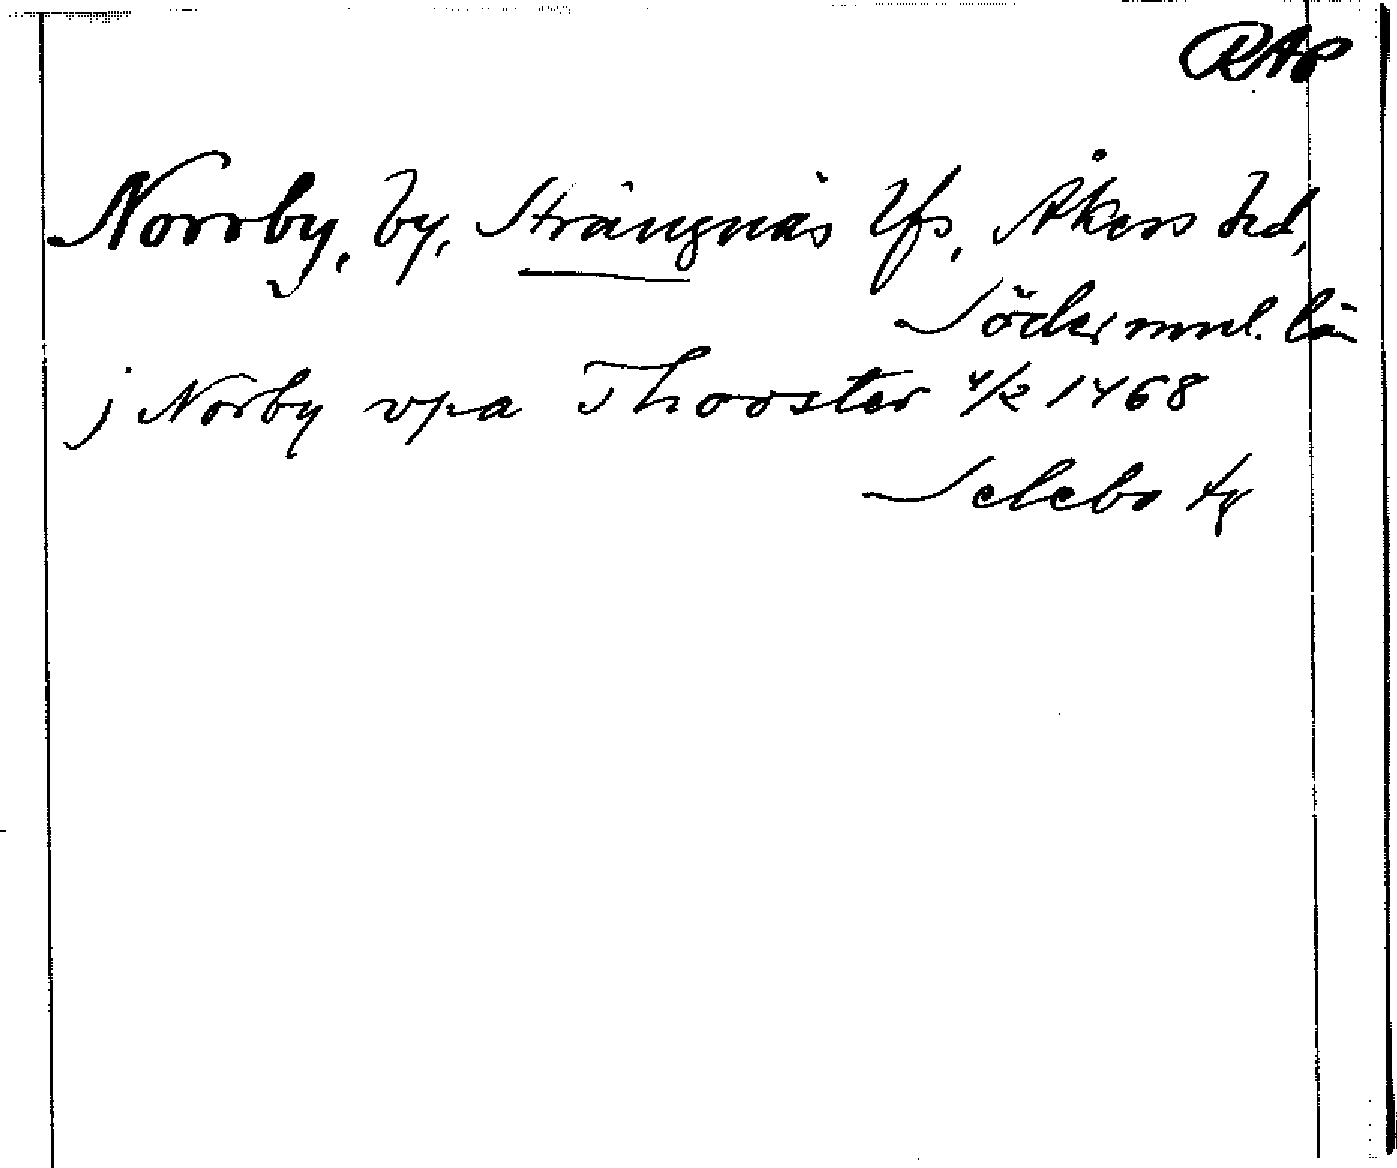 RAP
Norrby, by, Strängnäs lfs, Åkers hd,
Södermnl. län
j Norby vpa Thooster 4/2 1468
Selebo